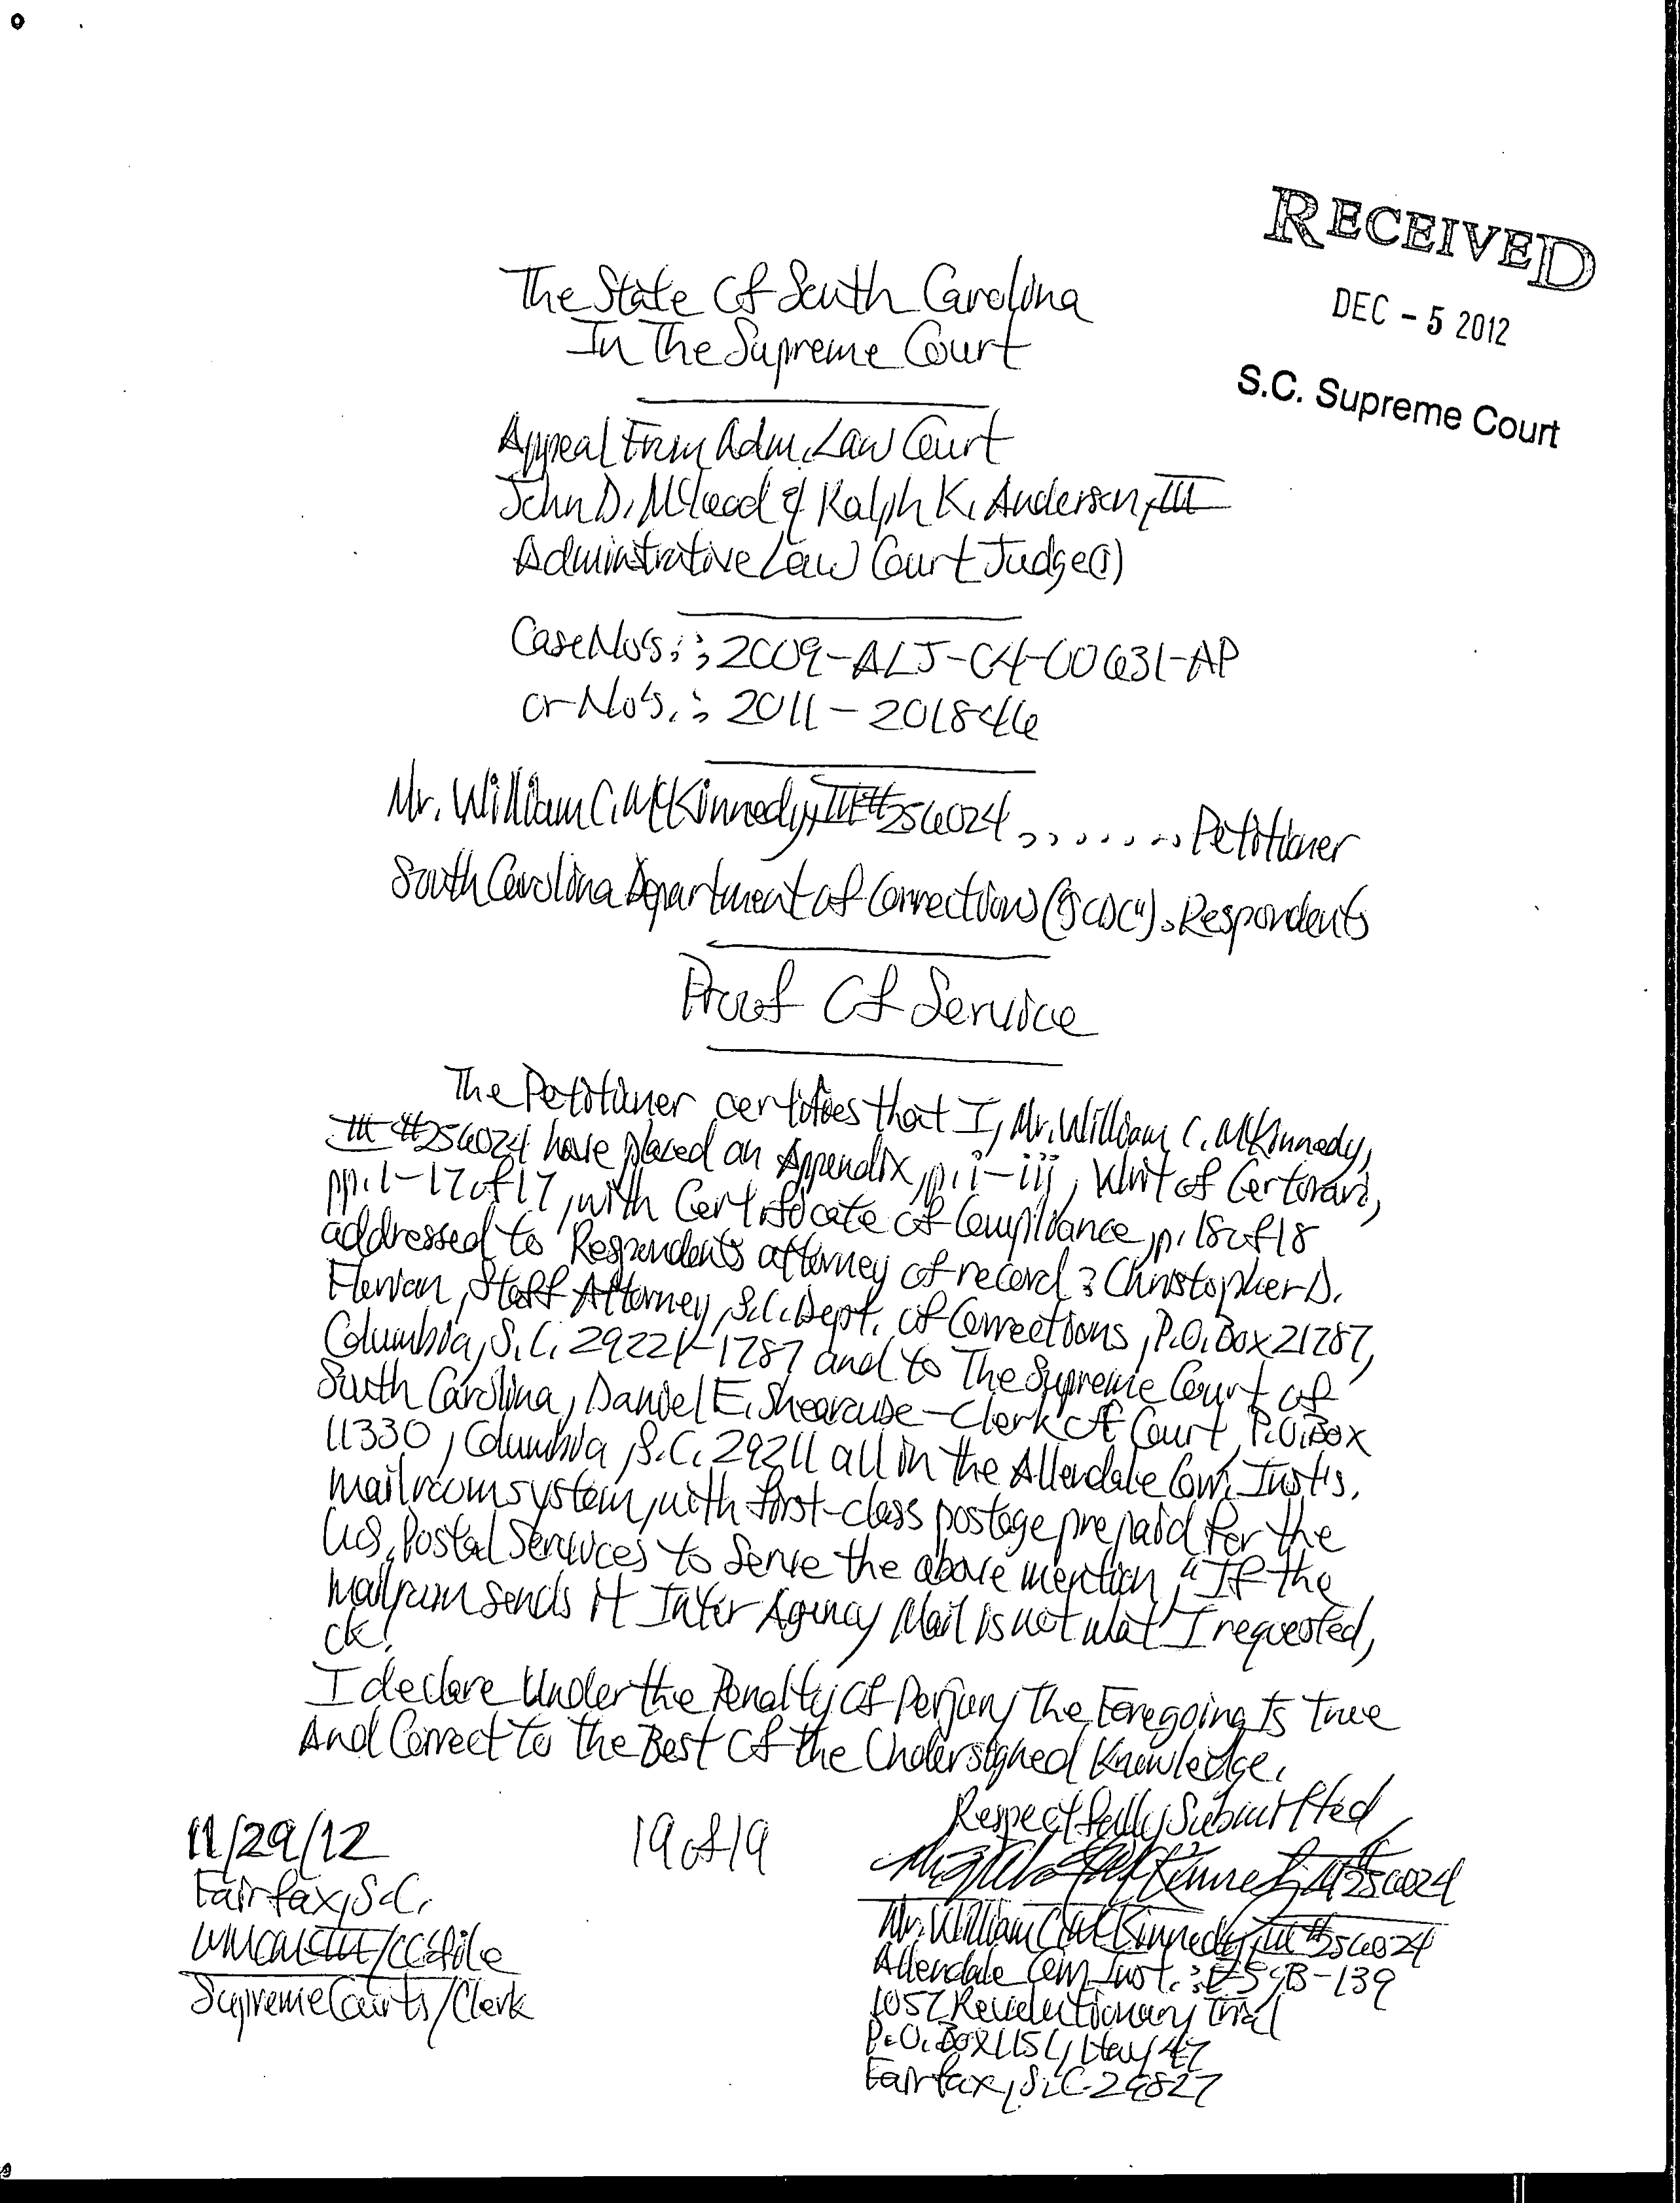 RECEIVED
DEC - 5 2012
S.C. Supreme Court
The State Of South Carolina
In The Supreme Court
Appeal From Adm. Law Court
John D. McLeod & Ralph K. Anderson, III
Admintrative Law Court Judge(s)
Case No's.: 2009-ALJ-04-00631-AP
or No's.: 2011-201846
Mr. William C. McKinnedy, III #256024 ........ Petitioner
South Carolina Department of Corrections ("SCDC"). Respondents
Proof Of Service
The Petitioner certifies that I, Mr. William C. McKinnedy,
III #256024 have placed an Appendix, p. i-iii, Writ of Certorari,
pp. 1-17 of 17, with Certificate of Compliance, p. 18 of 18
addressed to Respondents attorney of record: Christopher D.
Florian, Staff Attorney, S.C. Dept. of Corrections, P.O. Box 21787,
Columbia, S.C. 29221-1787 and to The Supreme Court of
South Carolina, Daniel E. Shearouse - Clerk Of Court, P.O. Box
11330, Columbia, S.C. 29211 all in the Allendale Corr. Inst's.
mailroom system, with first-class postage prepaid for the
U.S. Postal Services to serve the above mention, "If the
mailroom sends it Inter Agency Mail is not what I requested,
ok!
I declare Under the Penalty Of Perjury The Foregoing Is True
And Correct to the Best Of the Undersigned Knowledge.
Respectfully Submitted
11/29/12
19 of 19
Fairfax, S.C.
#256024
WMCMCIII/CC:file
Mr. William C. McKinnedy, III #256024
Supreme Courts/Clerk
Allendale Corr. Inst.: B-139
1057 Revolutionary Trial
P.O. Box 1151, Hwy 47
Fairfax, S.C. 29827